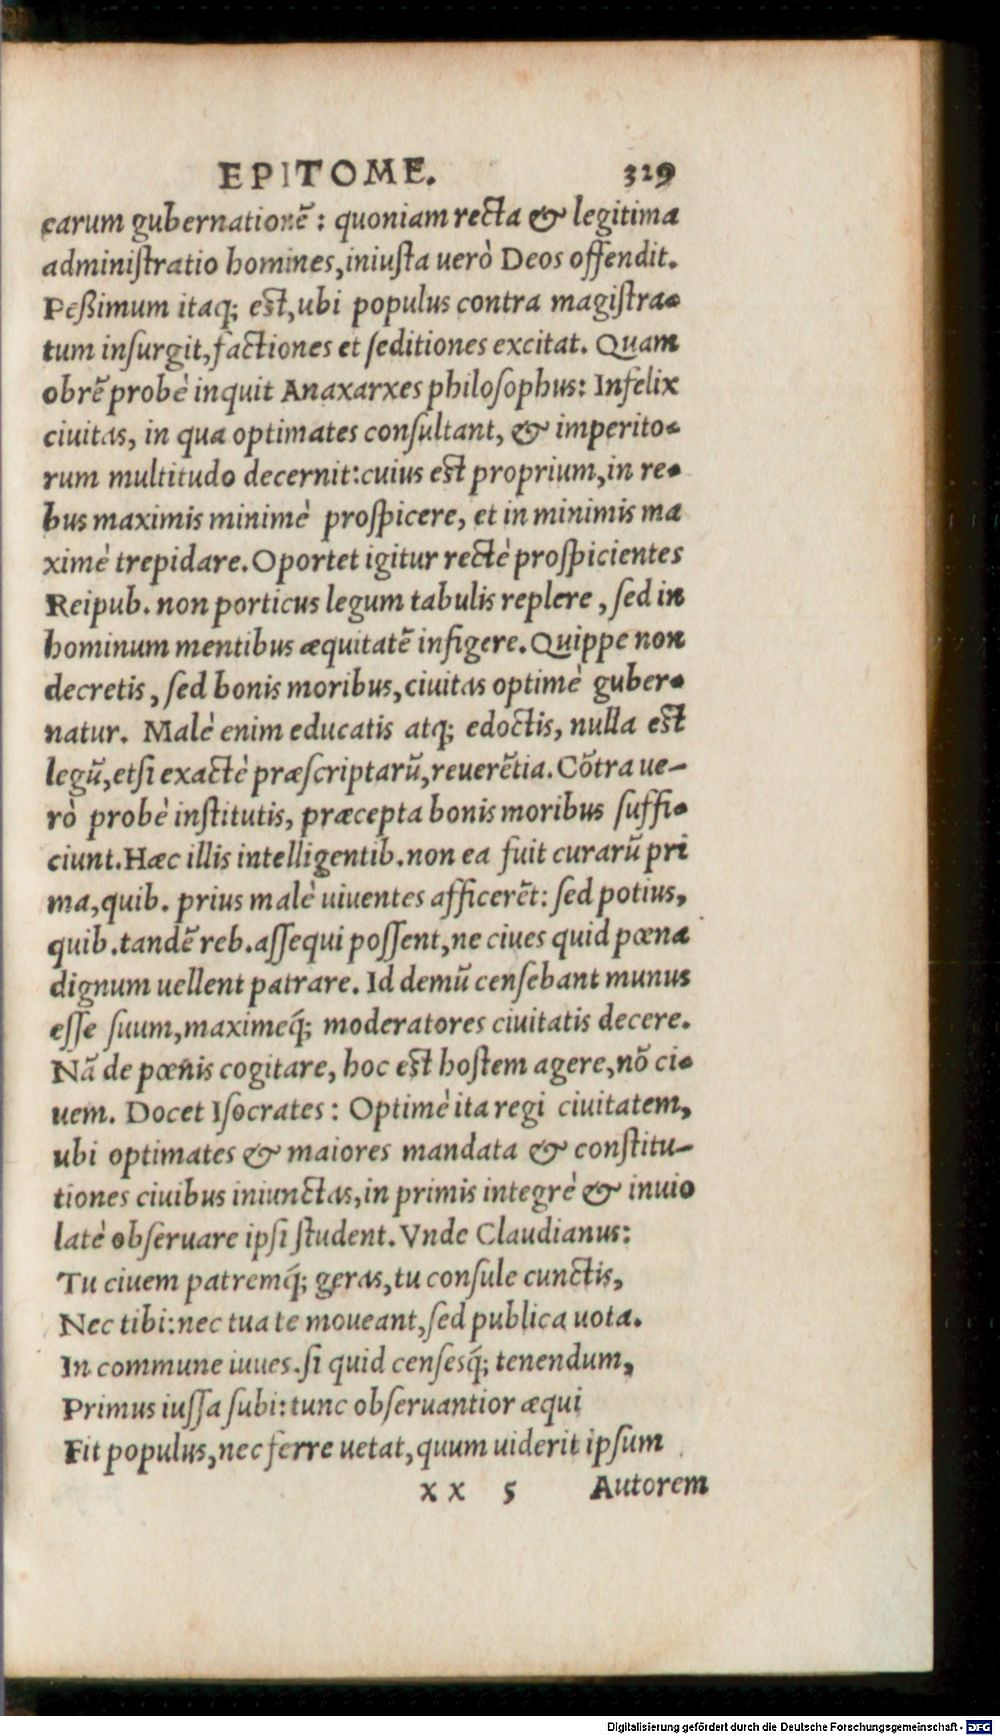 EPITOME. 329
earum gubernationẽ: quoniam recta & legitima
adminiſtratio homines, iniuſta uerò Deos offendit.
Peßimum itaq; eſt, ubi populus contra magiſtra-
tum inſurgit, factiones et ſeditiones excitat. Quam
obrẽ probè inquit Anaxarxes philoſophus: Infelix
ciuitas, in qua optimates conſultant, & imperito-
rum multitudo decernit: cuius eſt proprium, in re-
bus maximis minimè proſpicere, et in minimis ma
ximè trepidare. Oportet igitur rectè proſpicientes
Reipub. non porticus legum tabulis replere, ſed in
hominum mentibus æquitatẽ infigere. Quippe non
decretis, ſed bonis moribus, ciuitas optimè guber-
natur. Malè enim educatis atq; edoctis, nulla eſt
legũ, etſi exactè præſcriptarũ, reuerẽtia. Cõtra ue-
rò probè inſtitutis, præcepta bonis moribus ſuffi-
ciunt. Hæc illis intelligentib. non ea fuit curarũ pri
ma, quib. prius malè uiuentes afficerẽt: ſed potius,
quib. tandẽ reb. aſſequi poſſent, ne ciues quid pœna
dignum uellent patrare. Id demũ cenſebant munus
eſſe ſuum, maximeq́; moderatores ciuitatis decere.
Nã de pœnis cogitare, hoc eſt hoſtem agere, nõ ci-
uem. Docet Iſocrates: Optimè ita regi ciuitatem,
ubi optimates & maiores mandata & conſtitu-
tiones ciuibus iniunctas, in primis integrè & inuio
latè obſeruare ipſi ſtudent. Vnde Claudianus:
Tu ciuem patremq́; geras, tu conſule cunctis,
Nec tibi: nec tua te moueant, ſed publica uota.
In commune iuues. ſi quid cenſesq́; tenendum,
Primus iuſſa ſubi: tunc obſeruantior æqui
Fit populus, nec ferre uetat, quum uiderit ipſum
xx 5 Autorem
Digitalisierung gefördert durch die Deutsche Forschungsgemeinschaft - DFG